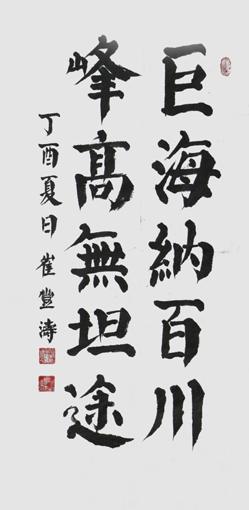 巨海納百川
峰高無坦途
丁酉夏日崔豐濤